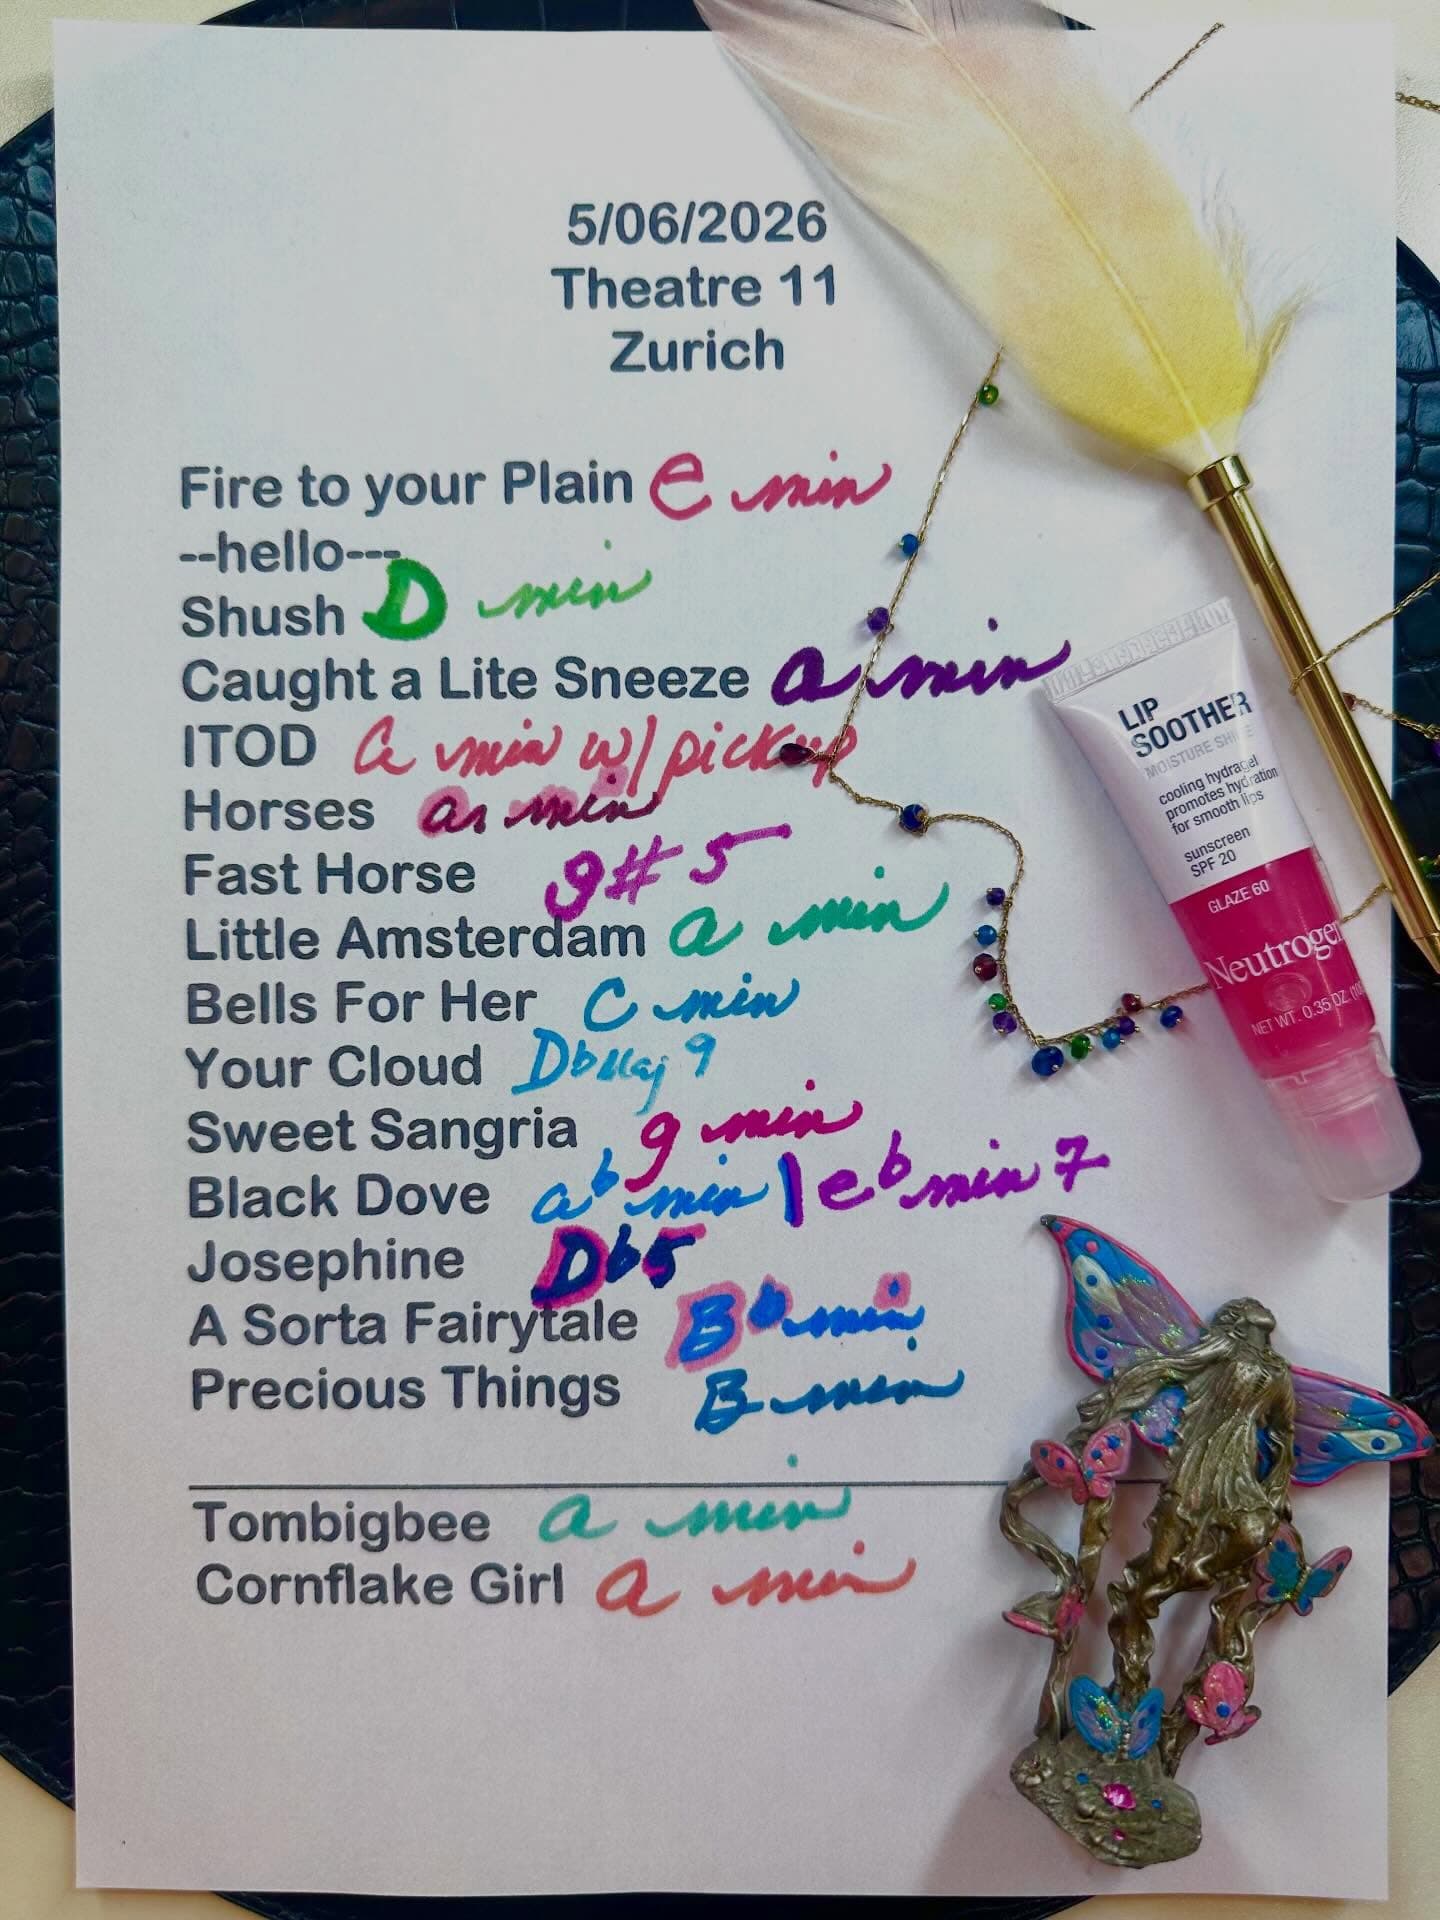 5/06/2026
Theatre 11
Zurich
Fire to your Plain e min
--hello---
Shush D min
Caught a Lite Sneeze a min
ITOD a min w/ pickup
Horses a min
Fast Horse g# 5
Little Amsterdam a min
Bells For Her C min
Your Cloud Db Maj 9
Sweet Sangria g min
Black Dove ab min | eb min 7
Josephine Db5
A Sorta Fairytale Bb min
Precious Things B min
Tombigbee a min
Cornflake Girl a min
LIP
SOOTHER
MOISTURE SHINE
cooling hydragel
promotes hydration
for smooth lips
sunscreen
SPF 20
GLAZE 60
Neutrogen
NET WT. 0.35 OZ.